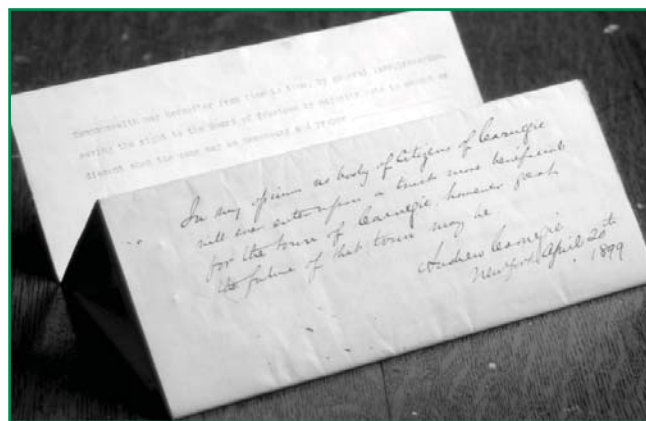 Commonwealth may hereafter from time to time, by general legislation,
saving the right to the Board of Trustees by majority vote to accept or
dissent when the same may be necessary and proper
In my opinion no body of Citizens of Carnegie
will ever enter upon a trust more beneficial
for the town of Carnegie, however great
the future of that town may be
Andrew Carnegie
New York, April 20th
1899